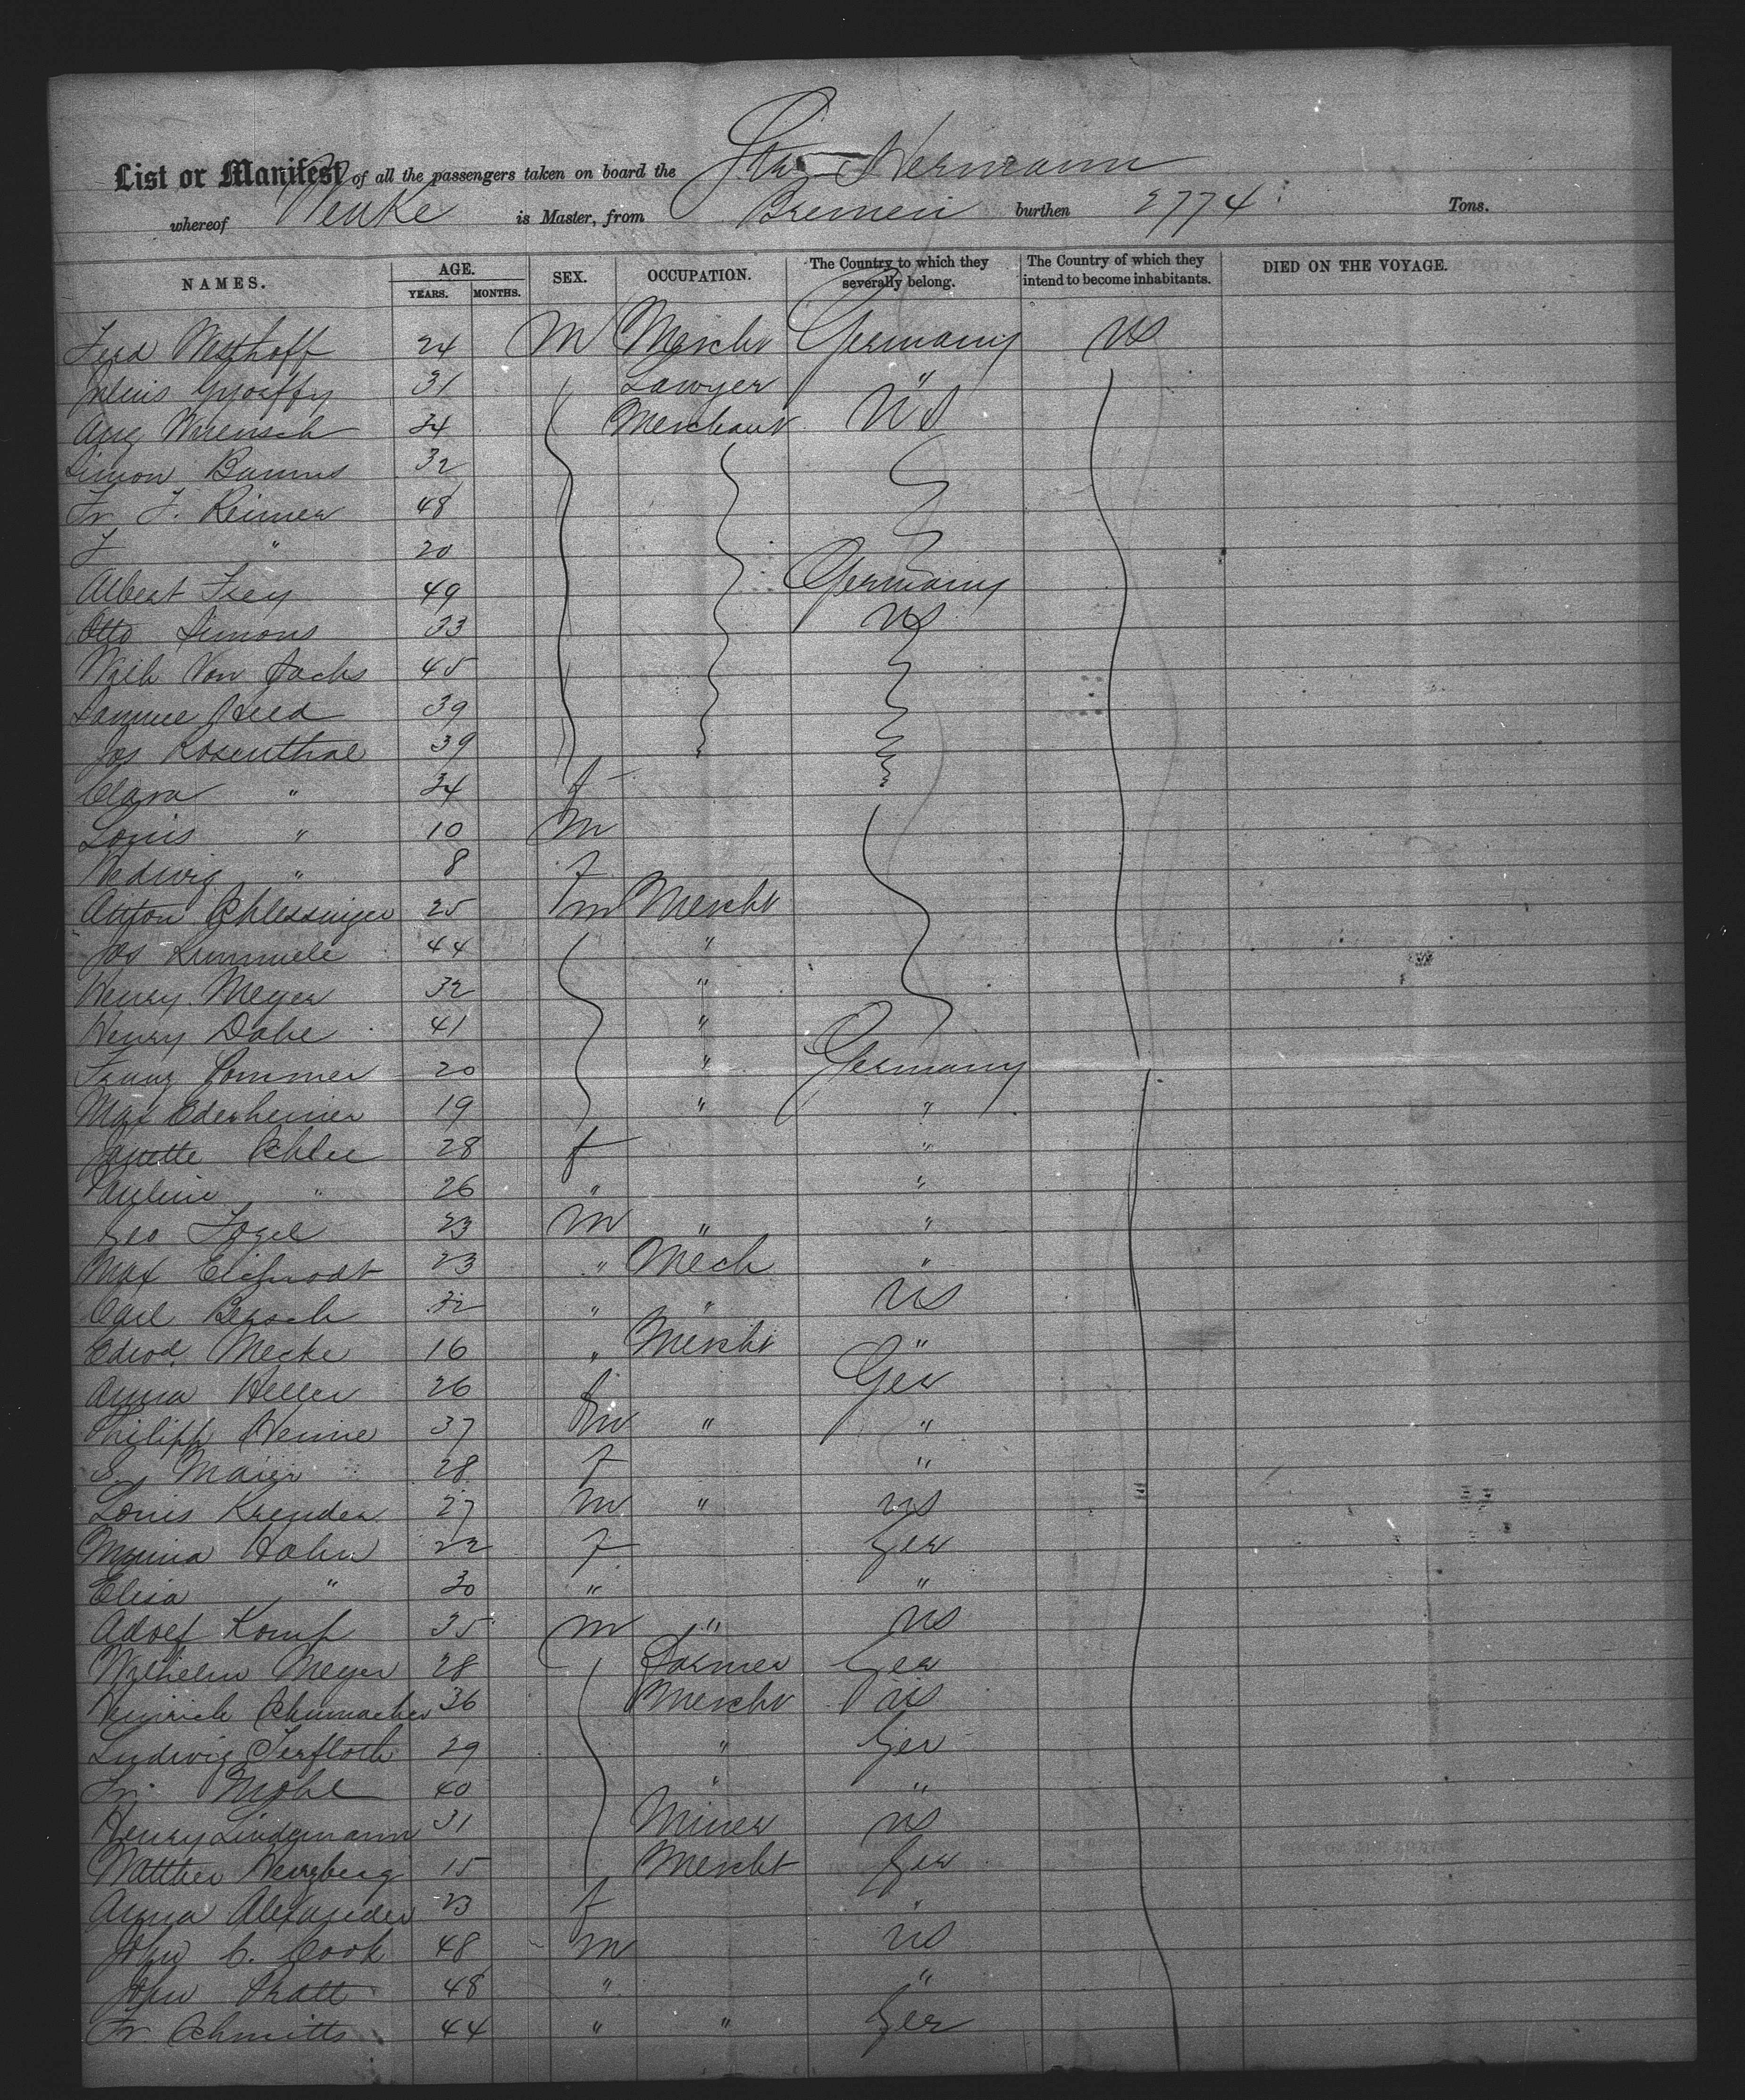 List or Manifest of all the passengers taken on board the Str Hermann
whereof is Master, from Bremen burthen 2774 Tons.
NAMES. AGE. YEARS. MONTHS. SEX. OCCUPATION. The Country to which they severally belong. The Country of which they intend to become inhabitants. DIED ON THE VOYAGE.
Ferd Westhoff 24 M Mercht Germany US
Julius Gyorffy 31 Lawyer "
Aug Wrensch 34 Merchant US
Simon 32
Fr J. Reimer 48
J " 20
Albert Frey 49 Germany
Otto Simons 33 US
Wilh Von Sachs 45
Samuel Heed 39
Jos Rosenthal 39
Clara " 34 f
Louis " 10 M
Hedwig " 8 f
Anton Schlessinger 25 m Mercht
Jos 44 "
Henry Meyer 32 "
Henry Dahe 41 "
Franz Sommer 20 " Germany
Max Ederheimer 19 " "
Janette Schlee 28 f "
Pauline " 26 " "
Geo Fogel 23 M " "
Max 23 " Mech "
Carl Bersch 32 " " US
Edwd Mecke 16 " Mercht "
Anna Heller 26 f Ger
Philipp Henne 37 m " "
S. Maier 28 f "
Louis Krender 27 m " US
Minna Hahn 22 f Ger
Elisa " 30 " "
Adolf Komp 35 M " US
Wilhelm Meyer 28 Farmer Ger
Heinrich Schumacher 36 Mercht US
Ludwig Terfloth 29 " Ger
Fr. Mohl 40 " "
Henry Lindemann 31 Miner US
Walther Herzberg 15 Mercht Ger
Anna Alexander 23 f "
John C. Cook 48 m US
John Pratt 48 " "
Fr. Schmitts 44 " " Ger